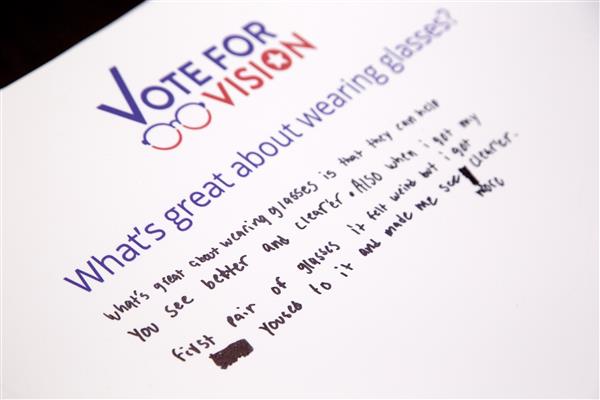 VOTE FOR
VISION
What's great about wearing glasses?
What's great about wearing glasses is that they can help
You see better and clearer. Also when i got my
first pair of glasses it felt weird but i got
youses to it and made me see clearer.
more